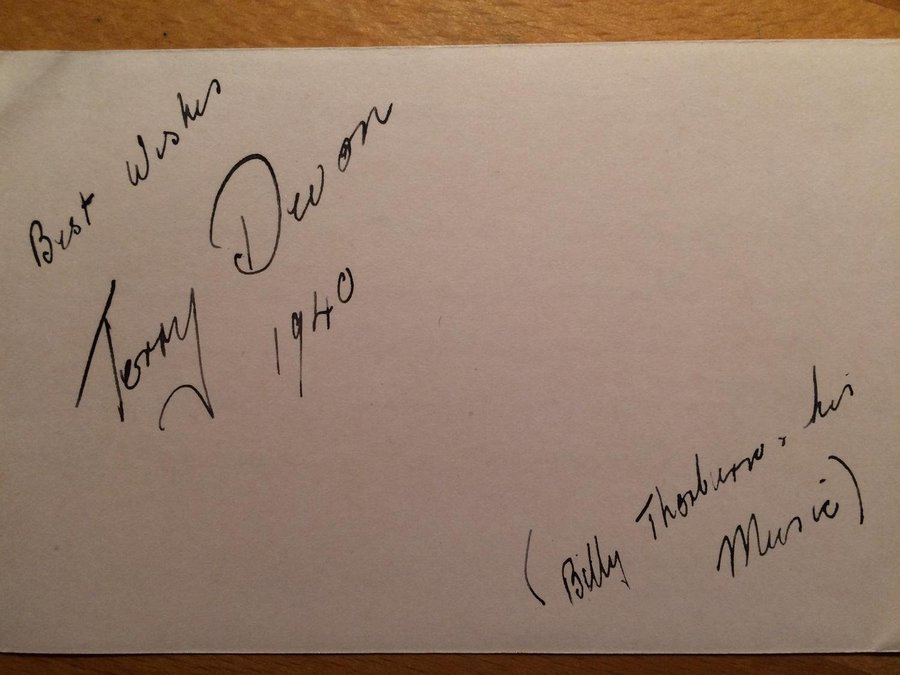 Best Wishes
Terry Devon
1940
(Billy Thorburn & his
Music)